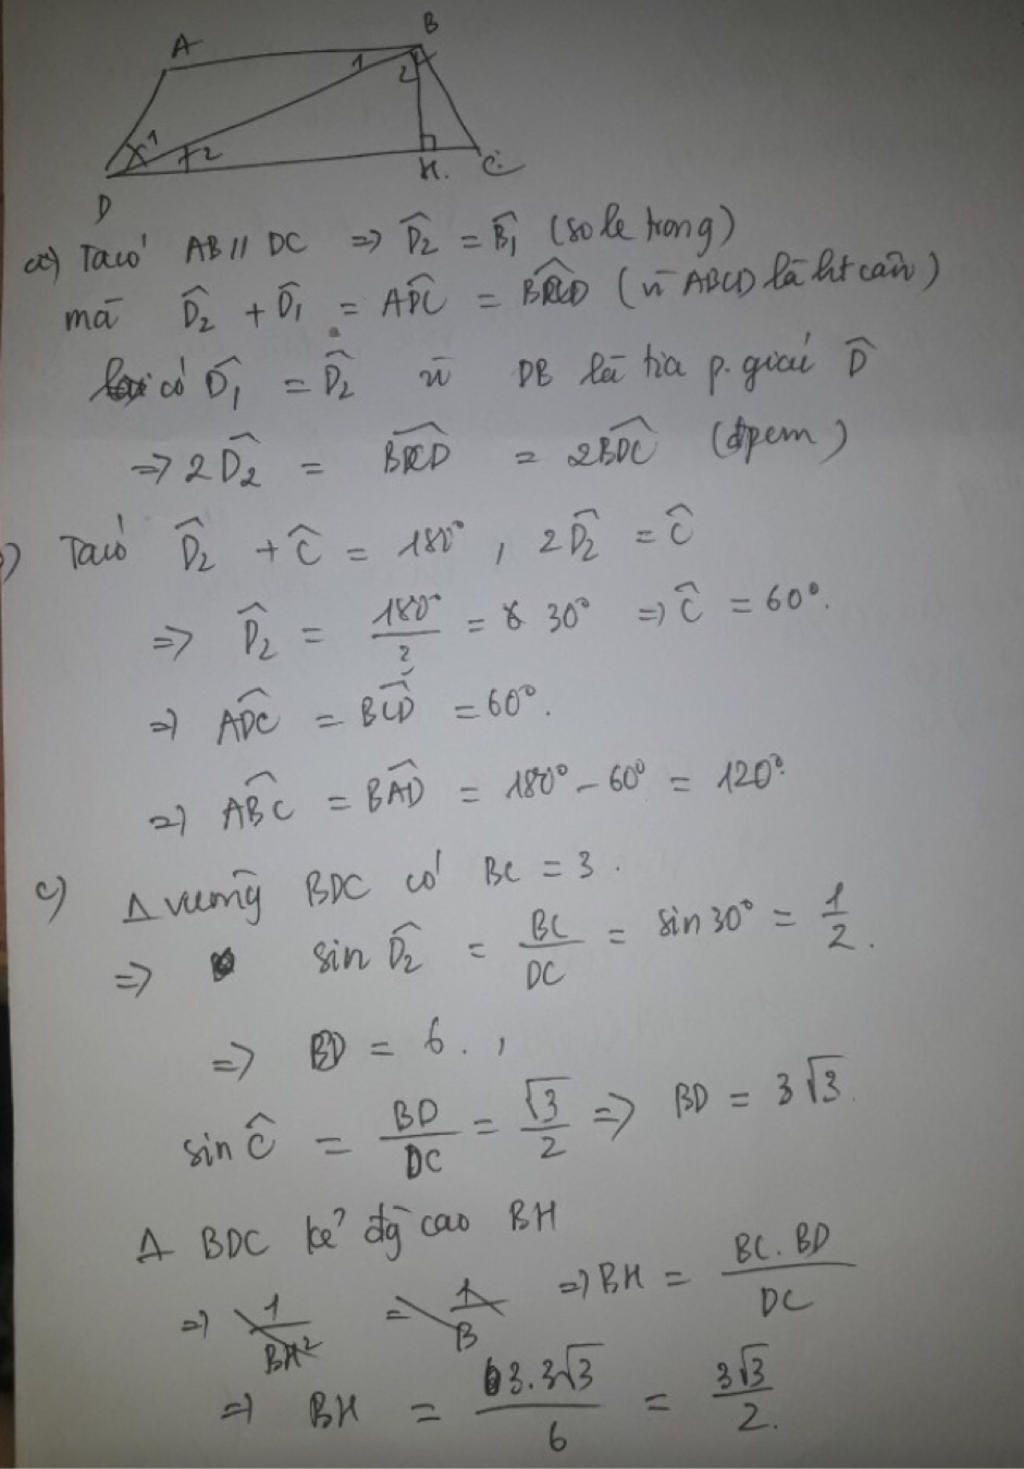 A
B
1
2
1
2
D
H.
C
a) Ta có AB // DC => D̂2 = B̂1 (so le trong)
mà D̂2 + D̂1 = ADC = BCD (vì ABCD là ht cân)
có D̂1 = D̂2 vì DB là tia p. giác D̂
=> 2D̂2 = BCD = 2BDC (đpcm)
) Ta có D̂2 + Ĉ = 180°, 2D̂2 = Ĉ
=> D̂2 = 180°/ = 30° => Ĉ = 60°.
=> ADC = BCD = 60°.
=> ABC = BAD = 180° - 60° = 120°
c) Δ vuông BDC có BC = 3.
=> sin D̂2 = BC/DC = sin 30° = 1/2.
=> BD = 6.,
sin Ĉ = BD/DC = √3/2 => BD = 3√3.
Δ BDC kẻ đg cao BH
=> 1/BH² = 1/B => BH = BC.BD/DC
=> BH = 3.3√3/6 = 3√3/2.